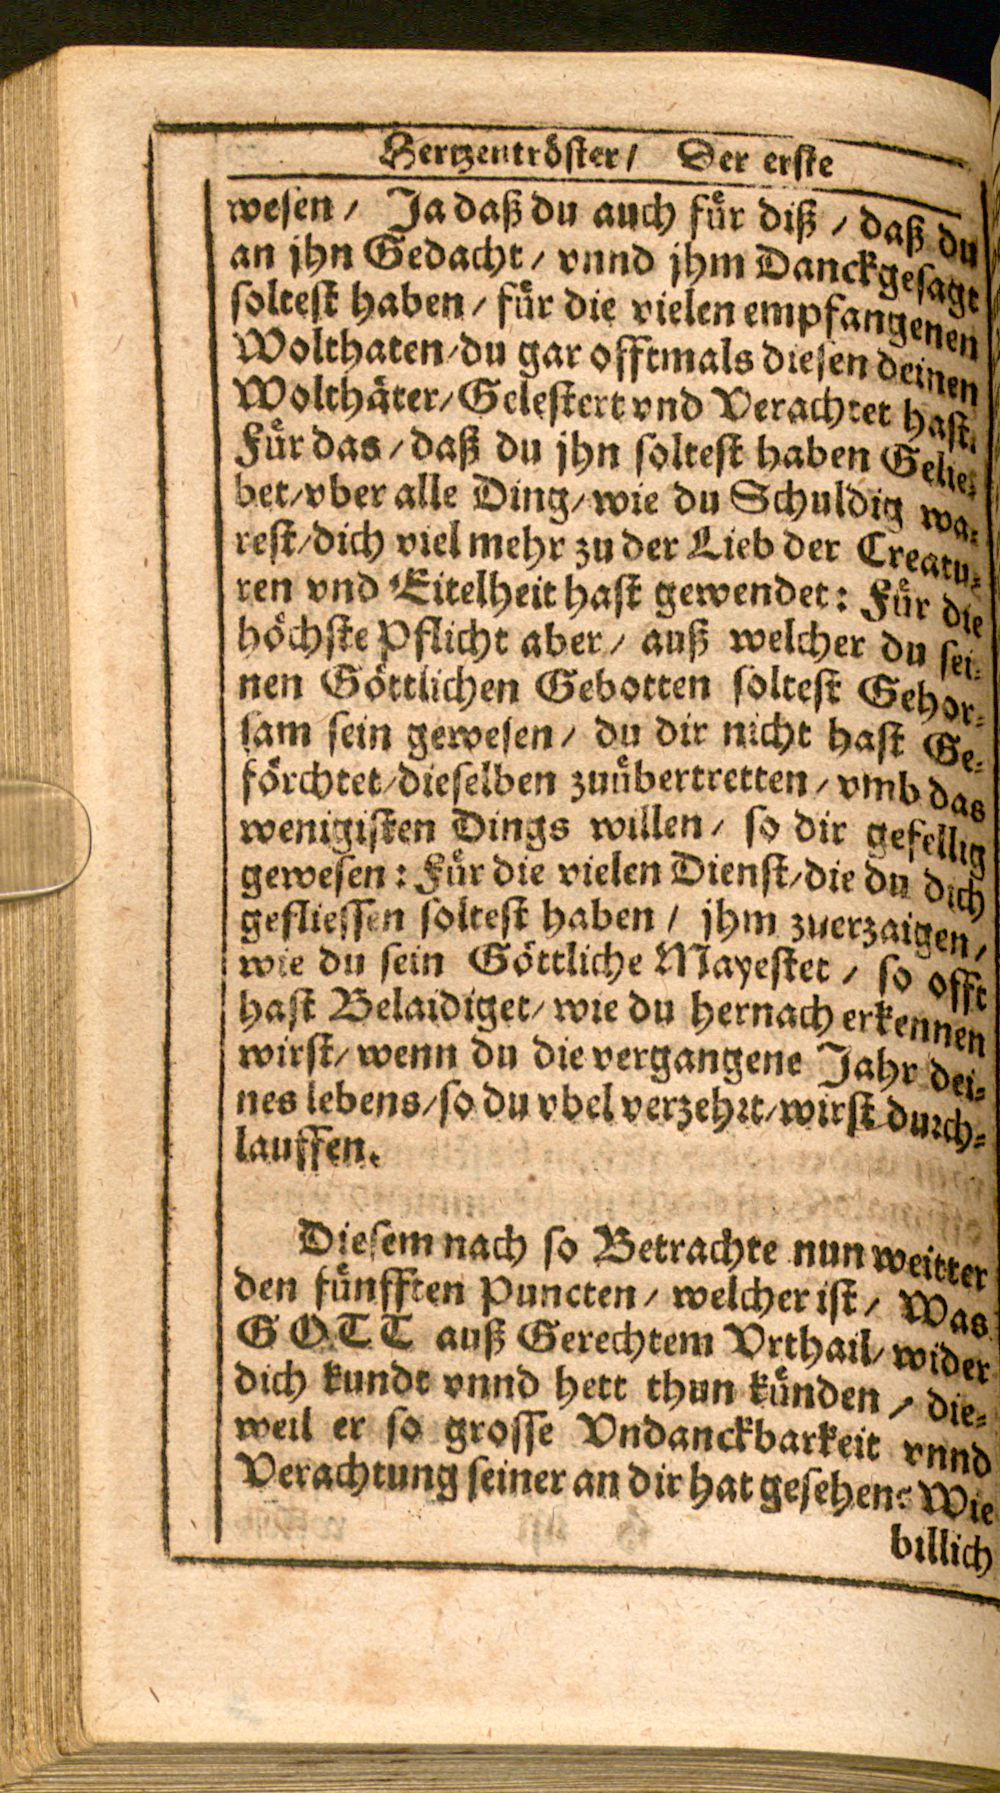 Hertzentröster/ Der erste
wesen / Ja daß du auch für diß / daß du
an jhn Gedacht / vnnd jhm Danckgesagt
soltest haben / für die vielen empfangenen
Wolthaten/du gar offtmals diesen deinen
Wolthäter/Gelestert vnd Verachtet hast.
Für das / daß du jhn soltest haben Gelie-
bet/vber alle Ding/wie du Schuldig wa-
rest/dich viel mehr zu der Lieb der Creatu-
ren vnd Eitelheit hast gewendet: Für die
höchste Pflicht aber / auß welcher du sei-
nen Göttlichen Gebotten soltest Gehor-
sam sein gewesen / du dir nicht hast Ge-
förchtet/dieselben zuübertretten / vmb das
wenigisten Dings willen / so dir gefellig
gewesen: Für die vielen Dienst/die du dich
gefliessen soltest haben / jhm zuerzaigen /
wie du sein Göttliche Mayestet / so offt
hast Belaidiget/ wie du hernach erkennen
wirst/ wenn du die vergangene Jahr dei-
nes lebens/so du vbel verzehrt/wirst durch-
lauffen.
Diesem nach so Betrachte nun weitter
den fünfften Puncten / welcher ist / Was
GOTT auß Gerechtem Vrthail/ wider
dich kundt vnnd hett thun künden / die-
weil er so grosse Vndanckbarkeit vnnd
Verachtung seiner an dir hat gesehen: Wie
billich